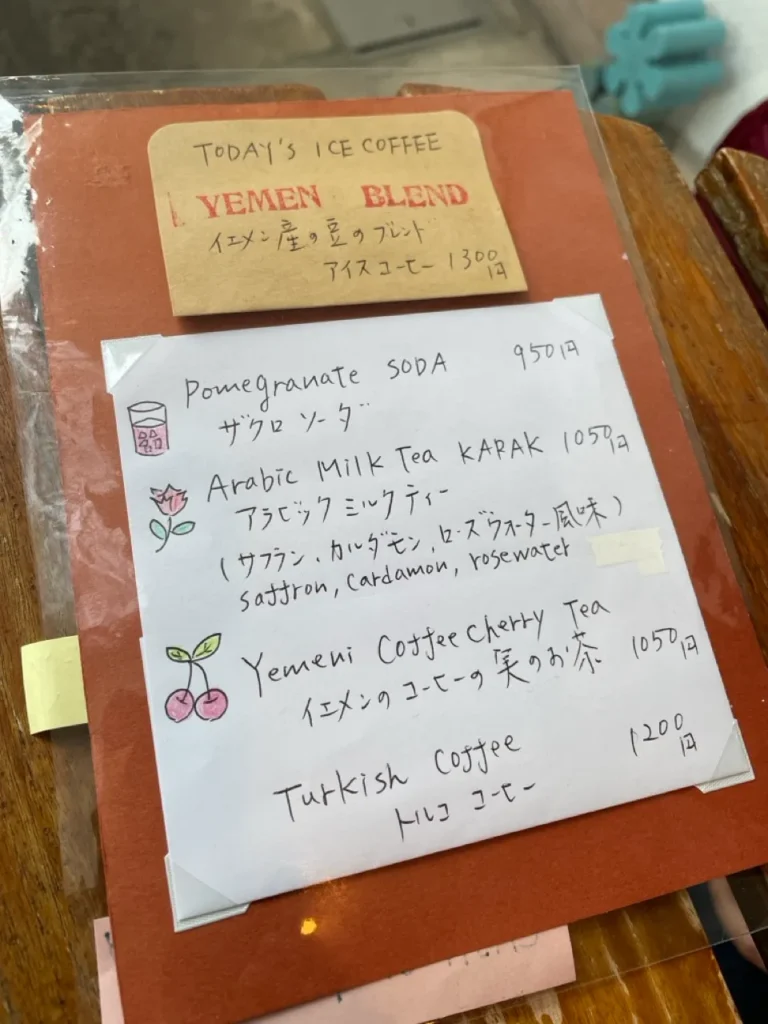 TODAY'S ICE COFFEE
YEMEN BLEND
イエメン産の豆のブレンド
アイスコーヒー 1300円
Pomegranate SODA 950円
ザクロソーダ
Arabic Milk Tea KARAK 1050円
アラビックミルクティー
(サフラン、カルダモン、ローズウォーター風味)
saffron, cardamon, rosewater
Yemeni Coffee cherry Tea
イエメンのコーヒーの実のお茶 1050円
Turkish Coffee 1200円
トルココーヒー